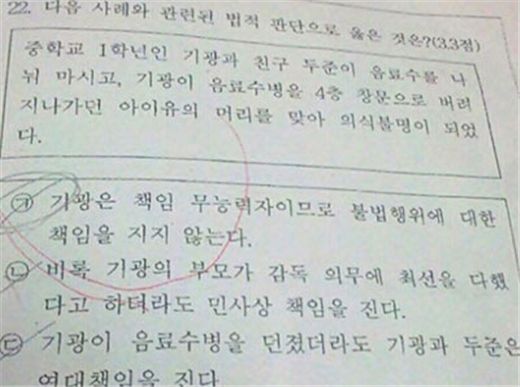 22. 다음 사례와 관련된 법적 판단으로 옳은 것은?(3.3점)
중학교 1학년인 기광과 친구 두준이 음료수를 나
눠 마시고, 기광이 음료수병을 4층 창문으로 버려
지나가던 아이유의 머리를 맞아 의식불명이 되었
다.
㉠ 기광은 책임 무능력자이므로 불법행위에 대한
책임을 지지 않는다.
㉡ 비록 기광의 부모가 감독 의무에 최선을 다했
다고 하더라도 민사상 책임을 진다.
㉢ 기광이 음료수병을 던졌더라도 기광과 두준은
연대책임을 진다